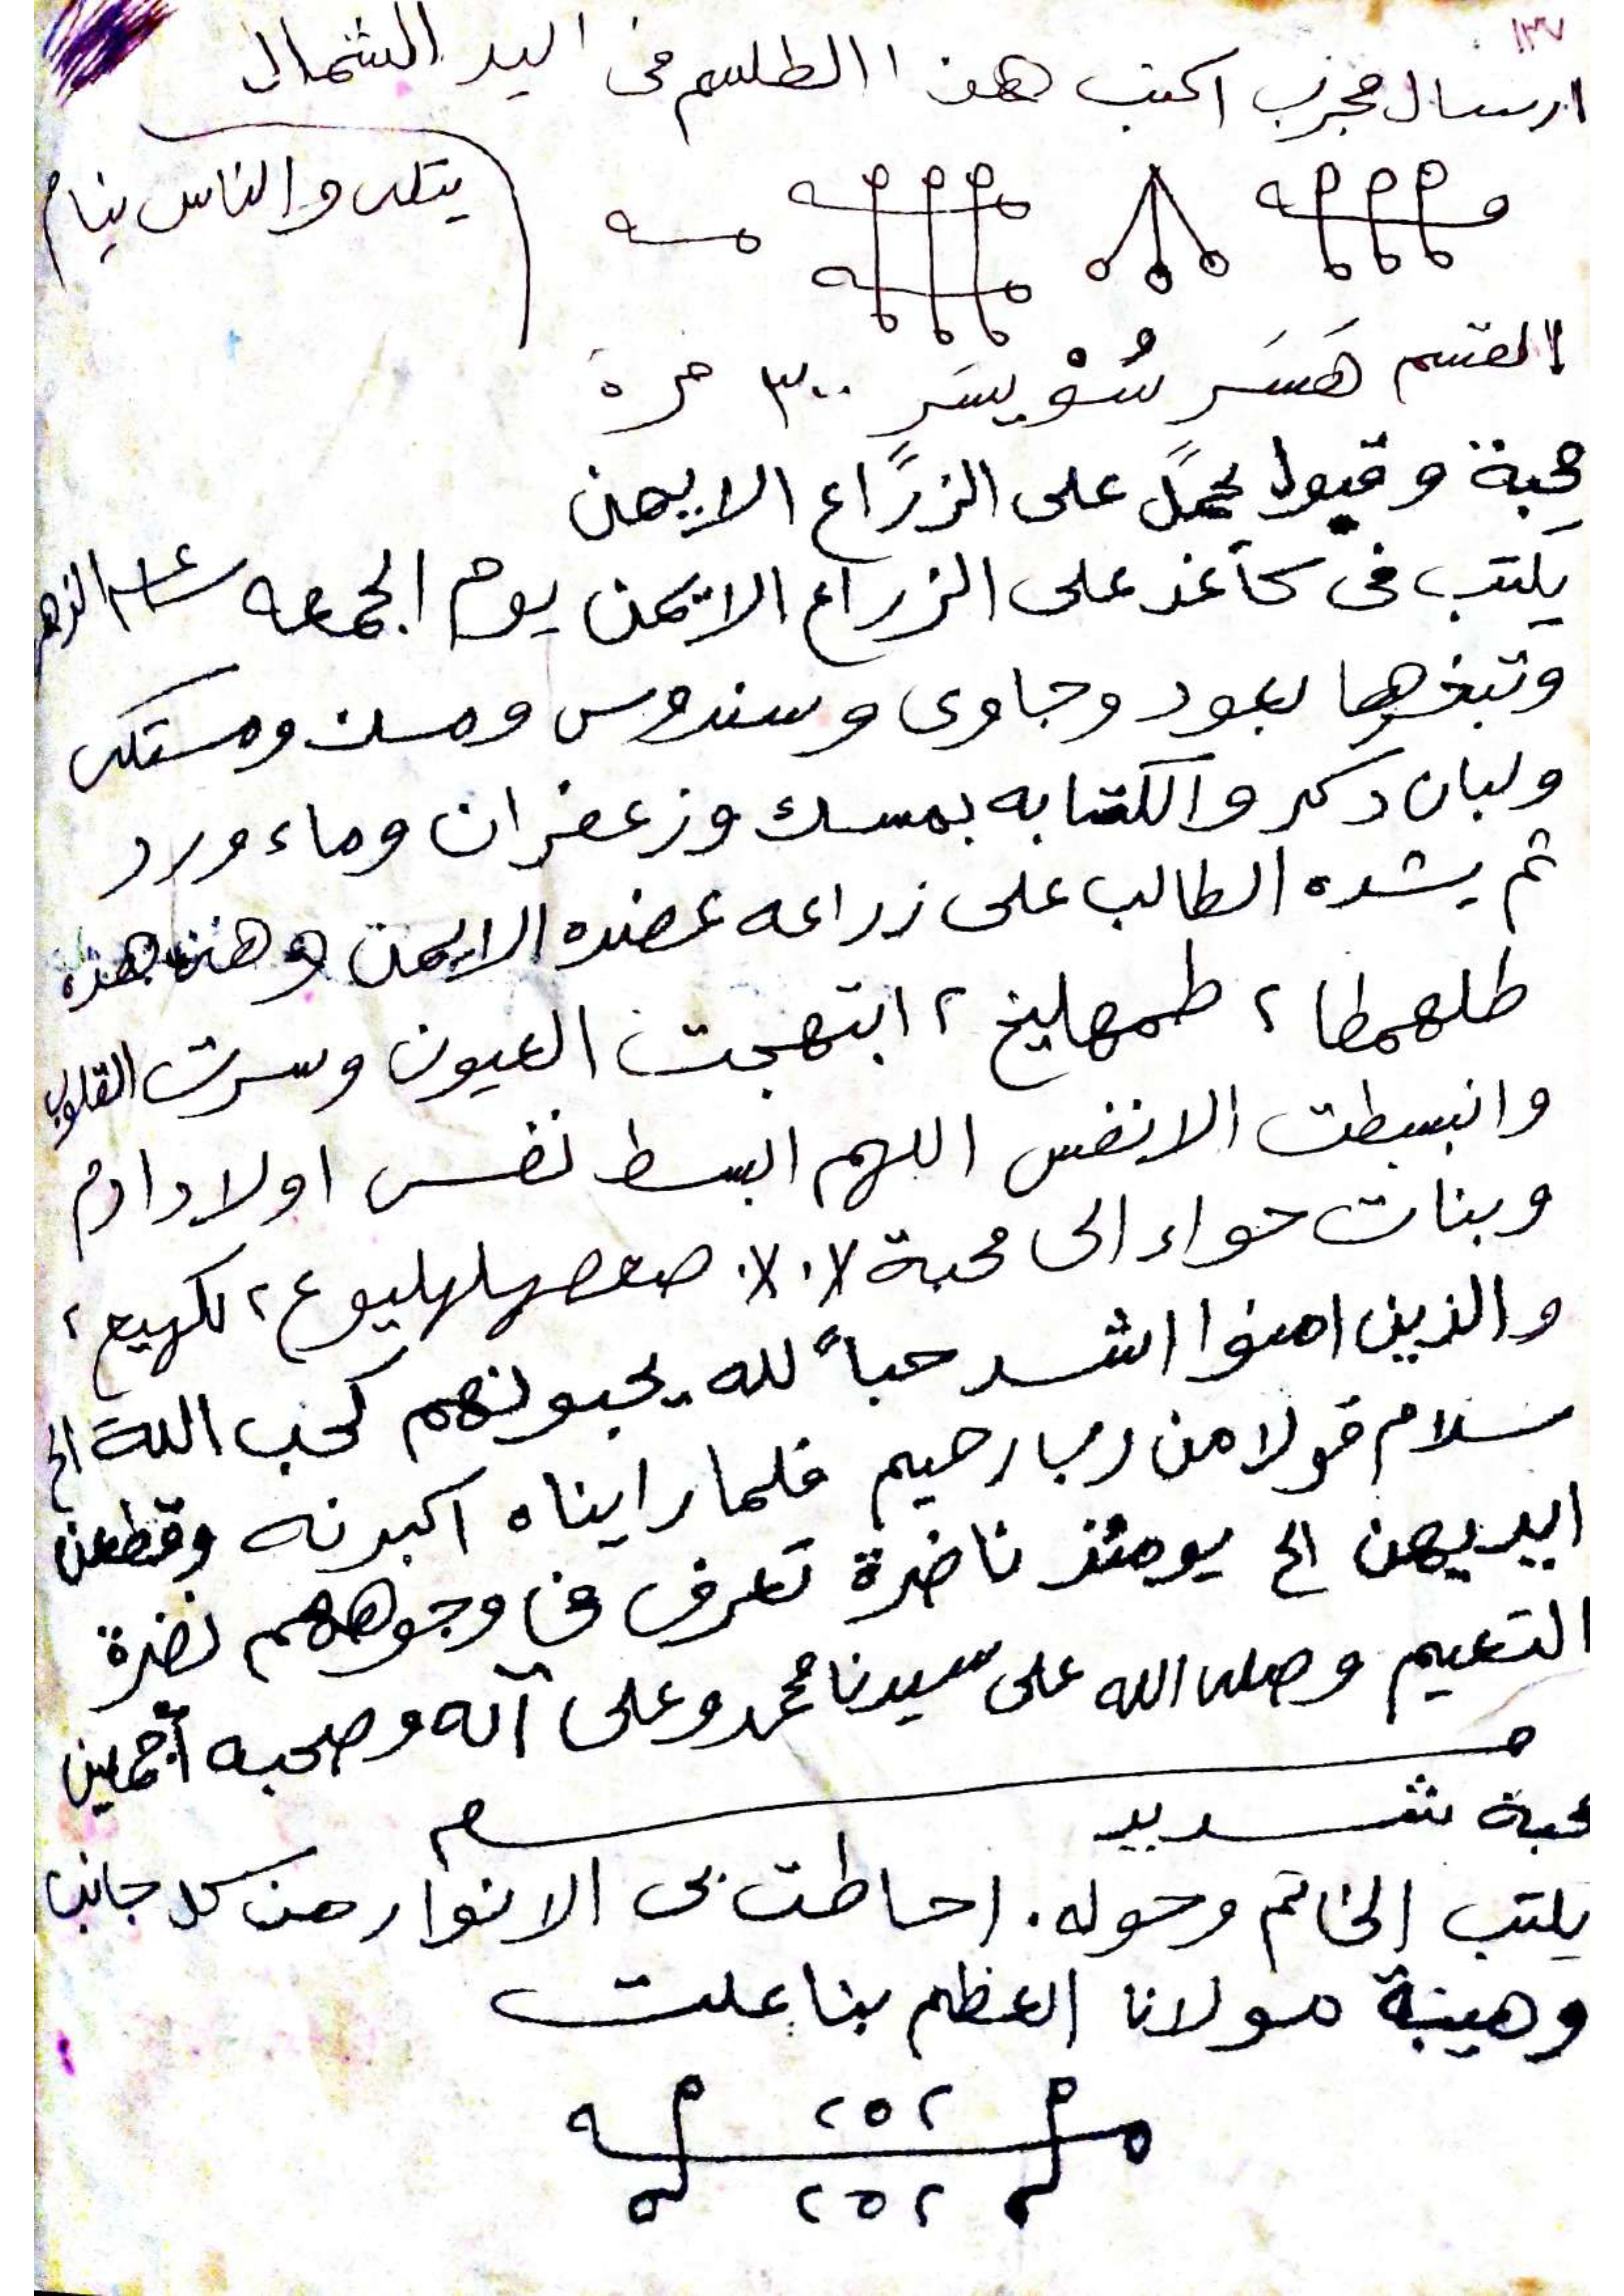 ١٣٧
ارسال مجرب اكتب هذا الطلسم فى اليد الشمال
يتلى والناس نيام
القسم هَسَر سُوْيسَر ٣٠٠ مرة
محبة وقبول يحمل على الزراع الايمن
يكتب فى كاغذ على الزراع الايمن يوم الجمعه الزهر
وتبخرها بعود وجاوى وسندروس ومسك ومستكى
ولبان دكر والكتابه بمسك وزعفران وماء ورد
ثم يشده الطالب على زراعه عضده الايمن وهذه هذه
طلهمطا ٢ طمهليخ ٢ ابتهجت العيون وسرت القلوب
وانبسطت الانفس اللهم ابسط نفس اولاد ادم
وبنات حواء الى محبة صعصهلهليوع ٢ لكهيع ٢
والذين امنوا اشد حباً لله يحبونهم كحب الله الخ
سلام قولا من رب رحيم فلما راينه اكبرنه وقطعن
ايديهن الخ يومئذ ناضرة تعرف فى وجوههم نضرة
النعيم وصلى الله على سيدنا محمد وعلى آله وصحبه أجمعين
محبة شديد
يكتب الخاتم وحوله. احاطت بى الانوار من كل جانب
وهيبة مولانا العظيم بنا علت
٢٥٢
٢٥٢